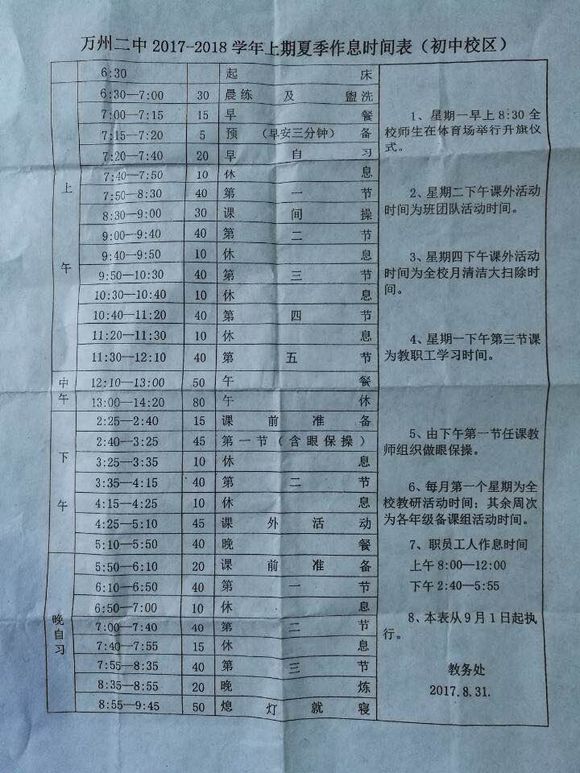 万州二中2017-2018学年上期夏季作息时间表（初中校区）
上午
6:30 起床
6:30—7:00 30 晨练及盥洗
7:00—7:15 15 早餐
7:15—7:20 5 预（早安三分钟）备
7:20—7:40 20 早自习
7:40—7:50 10 休息
7:50—8:30 40 第一节
8:30—9:00 30 课间操
9:00—9:40 40 第二节
9:40—9:50 10 休息
9:50—10:30 40 第三节
10:30—10:40 10 休息
10:40—11:20 40 第四节
11:20—11:30 10 休息
11:30—12:10 40 第五节
中午
12:10—13:00 50 午餐
13:00—14:20 80 午休
下午
2:25—2:40 15 课前准备
2:40—3:25 45 第一节（含眼保操）
3:25—3:35 10 休息
3:35—4:15 40 第二节
4:15—4:25 10 休息
4:25—5:10 45 课外活动
5:10—5:50 40 晚餐
晚自习
5:50—6:10 20 课前准备
6:10—6:50 40 第一节
6:50—7:00 10 休息
7:00—7:40 40 第二节
7:40—7:55 15 休息
7:55—8:35 40 第三节
8:35—8:55 20 晚炼
8:55—9:45 50 熄灯就寝
1、星期一早上8:30全
校师生在体育场举行升旗仪
式。
2、星期二下午课外活动
时间为班团队活动时间。
3、星期四下午课外活动
时间为全校月清洁大扫除时
间。
4、星期一下午第三节课
为教职工学习时间。
5、由下午第一节任课教
师组织做眼保操。
6、每月第一个星期为全
校教研活动时间；其余周次
为各年级备课组活动时间。
7、职员工人作息时间
上午8:00—12:00
下午2:40—5:55
8、本表从9月1日起执
行。
教务处
2017.8.31.